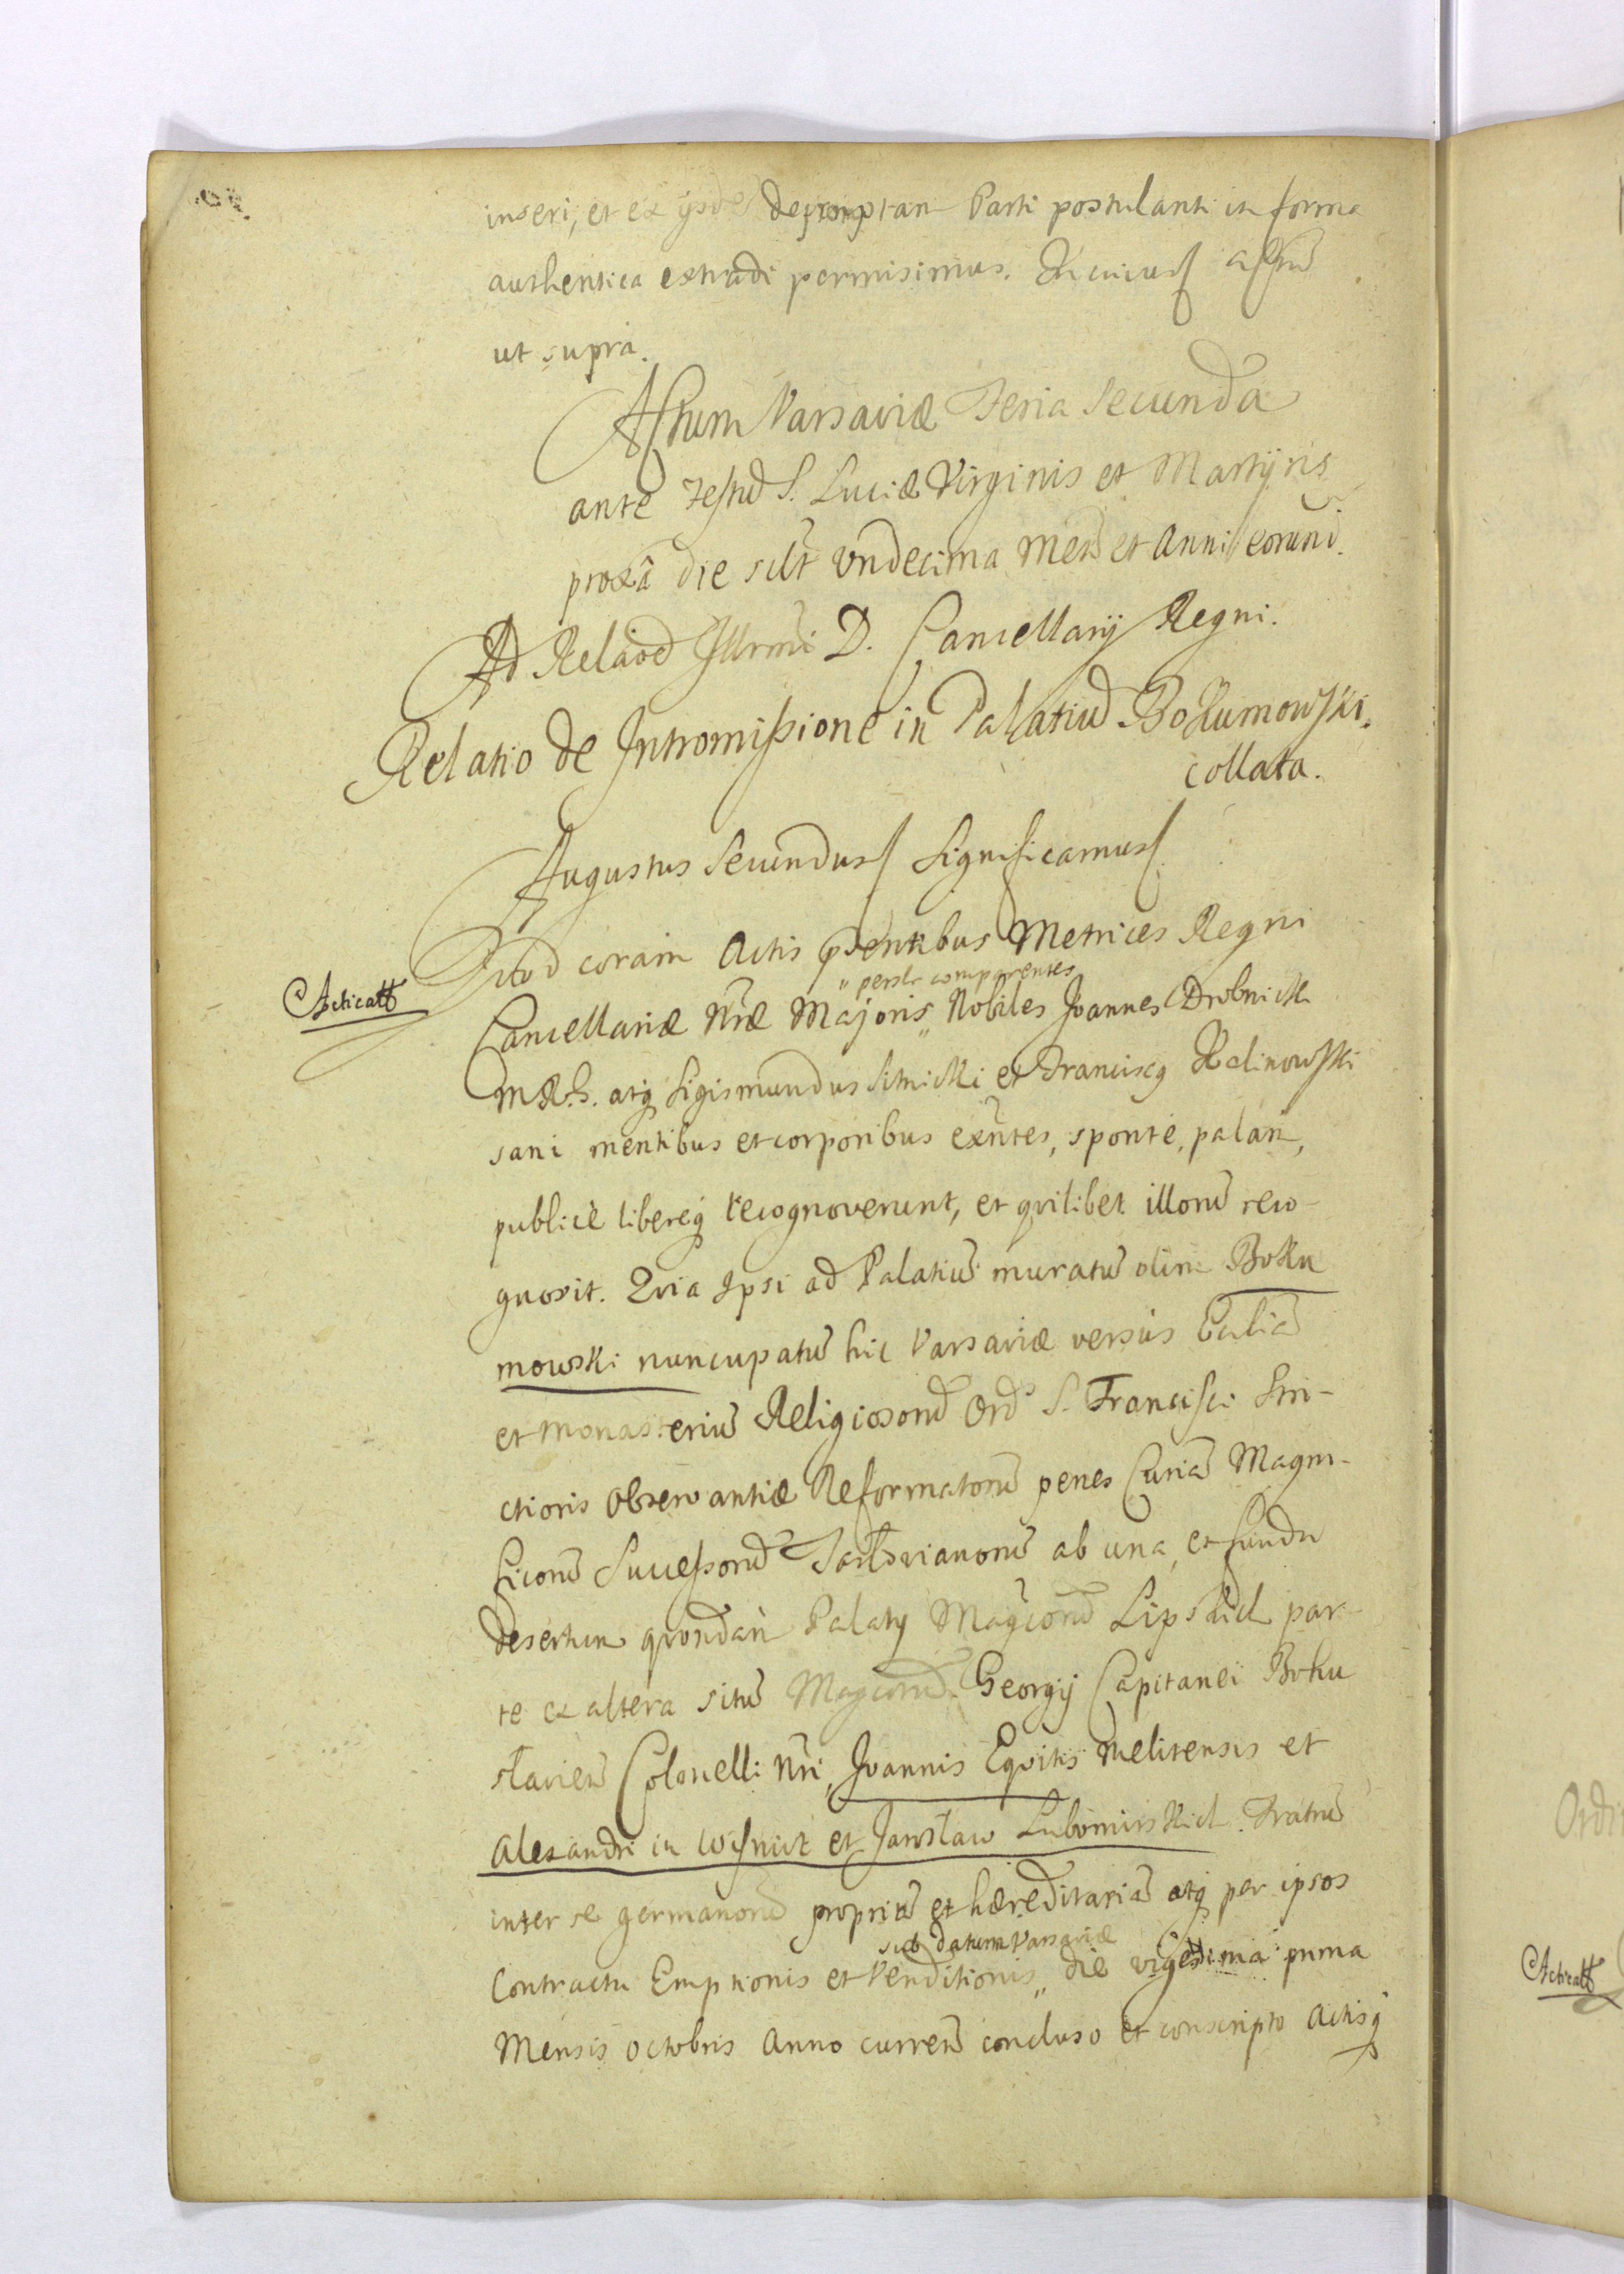 inseri, et ex ijsdē depromptam Parti postulanti in forma
authentica extradi permisimus. In cuius actū
ut supra.
Actum Varsaviæ Feria Secunda
ante Festū S. Luciæ Virginis et Martyris
proxā die sclt Undecima mēn et Anni eorund.
Ad Relaōē Illrmi D. Cancellarij Regni.
Relatio de Intromissione in Palatiū Bokumowski.
collata.
Augustus Secundus Significamus
Acticatt
Quod coram Actis pntibus Metrices Regni
" persl̄r comparentes
Cancellariæ Nræ Majoris " Nobiles Joannes Drobnicki
M.R.S. atq Sigismundus Sitnicki et Franciscq Kalinowski
sani mentibus et corporibus exn̄tes, sponte, palam,
publice libereq recognoverunt, et qvilibet illorū reco-
gnovit. Qvia Ipsi ad Palatiū muratū olim Boku
mowski nuncupatū hic Varsaviæ versus Eccliā
et monasteriū Religiosorū Ord S. Francisci Stri-
ctioris Observantiæ Reformatorū penes Curiā Magni-
ficorū Successorū Sartorianorū ab una, et fundū
desertum qvondam Palatij Magcorū Lipskich par-
te ex altera situ Magcorū Georgij Capitanei Bohu
slavien Colonelli Nri, Joannis Eqvitis Melitensis et
Alexandri in Wisnicz et Jaroslaw Lubomirskich Fratrū
inter se germanorū propriū et hæreditariū atq per ipsos
sub datum Varsaviæ
Contractu Emptionis et Venditionis " die vigesima prima
Mensis Octobris Anno curren concluso et conscripto Actisq
Acticatt